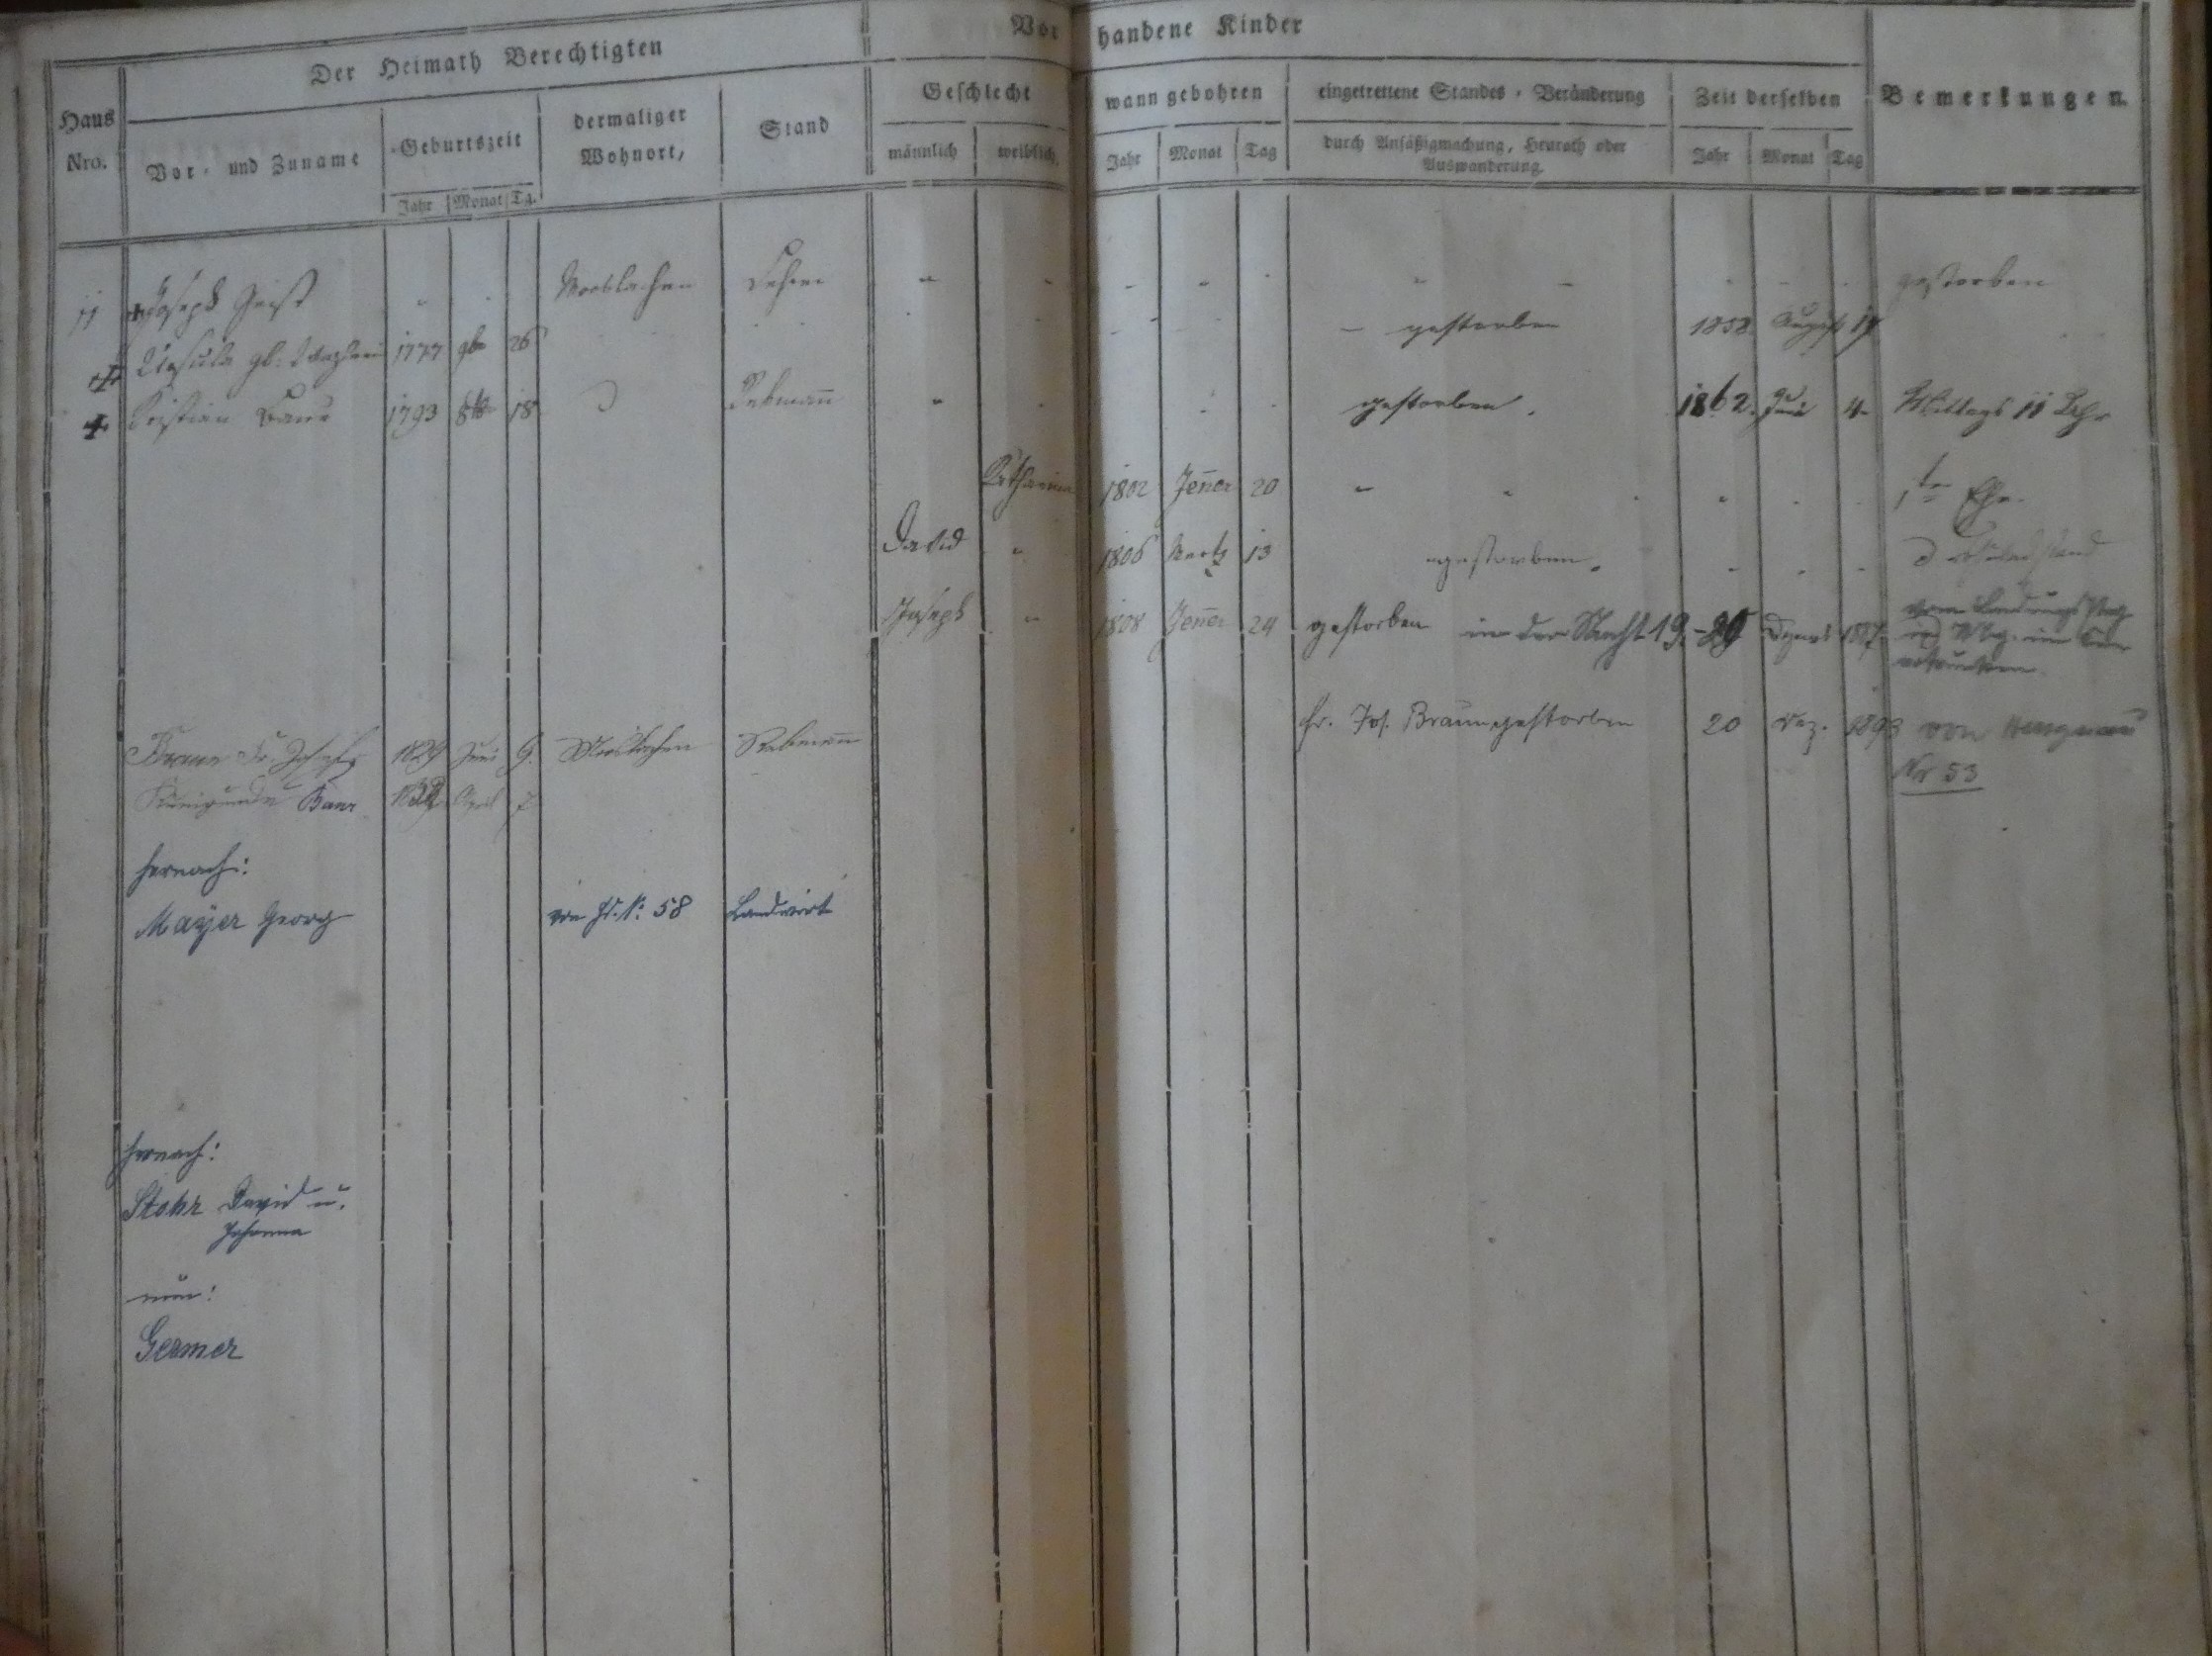 Der Heimath Berechtigten
Vorhandene Kinder
Haus Nro.
Vor- und Zuname
Geburtszeit
Jahr Monat Tg.
dermaliger Wohnort,
Stand
Geschlecht
männlich weiblich
wann gebohren
Jahr Monat Tag
eingetrettene Standes-Veränderung
durch Ansäßigmachung, Heurath oder
Auswanderung.
Zeit derselben
Jahr Monat Tag
Bemerkungen.
11 + Joseph Geist gestorben
+ Ursula gb: 1777 9br 26 gestorben 1858 August 17
+ Baur 1793 8br 18 Rebmann gestorben. 1862. Juni 4 Mittags 11 Uhr
Katharina 1802 Jenner 20 1ter Ehe.
David 1806 Martz 13 gestorben.
Joseph 1808 Jenner 24 gestorben in der Nacht 19.-20
ertrunken.
Braun Fr. Joseph 1829 Juni 9. Rebmann fr. Jos. Braun gestorben 20 Dez. 1893 von Hengnau
Nr 53
Kunigunde Baur April 7
hernach:
Mayer Georg von Hs. N: 58 Landwirt
hernach:
Stohr David u.
Johanna
nun:
Germer